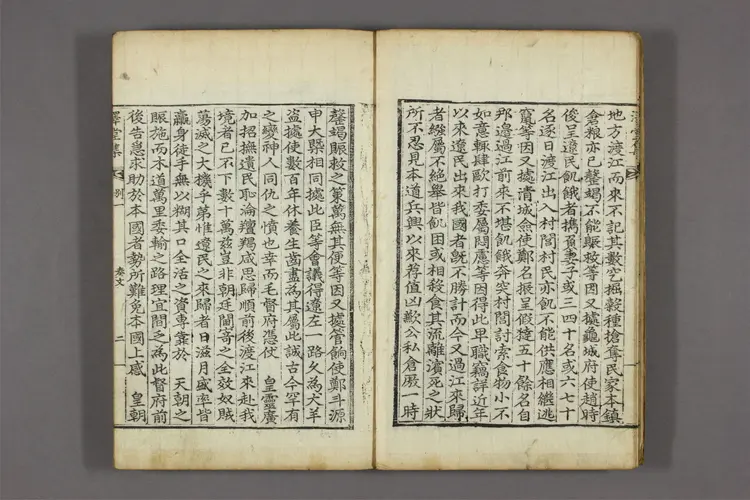 地方渡江而來不記其數空掘穀種搶奪民家本鎮
倉粮亦已罄竭不能賑救等因又據龜城府使趙時
俊呈遼民飢餓者携負妻子或三四十名或六七十
名逐日渡江出入村閭村民亦飢不能供應相繼逃
竄等因又據清城僉使鄭名振呈假㺚五十餘名自
那邊過江前來不堪飢餓奔突村閭討索食物小不
如意輒肆歐打委屬悶慮等因得此卑職竊詳近年
以來遼民出來我國者旣不勝計而今又過江來歸
者繈屬不絶擧皆飢困或相殺食其流離濱死之狀
所不忍見本道兵興以來荐值凶歉公私倉廒一時
罄竭賑救之策萬無其便等因又據管餉使鄭斗源
申大槩相同據此臣等會議得遼左一路久爲犬羊
盜據使數百年休養生齒盡爲其屬此誠古今罕有
之變神人同仇之憤也幸而毛督府憑仗 皇靈廣
加招撫遺民恥淪羶羯咸思歸順前後渡江來赴我
境者已不下數十萬兹豈非朝廷閫寄之全效奴賊
蕩滅之大機乎第惟遼民之來歸者日滋月盛率皆
羸身徒手無以糊其口全活之資專靠於 天朝之
賑施而本道萬里委輸之路理宜間之為此督府前
後告急求助於本國者勢所難免本國上感 皇朝
澤堂集 別一 奏文 二